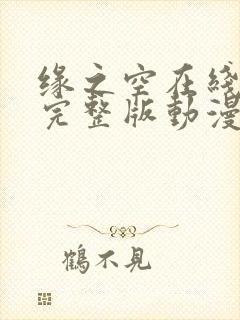 缘之空在綫
完整版動漫
鶴不見